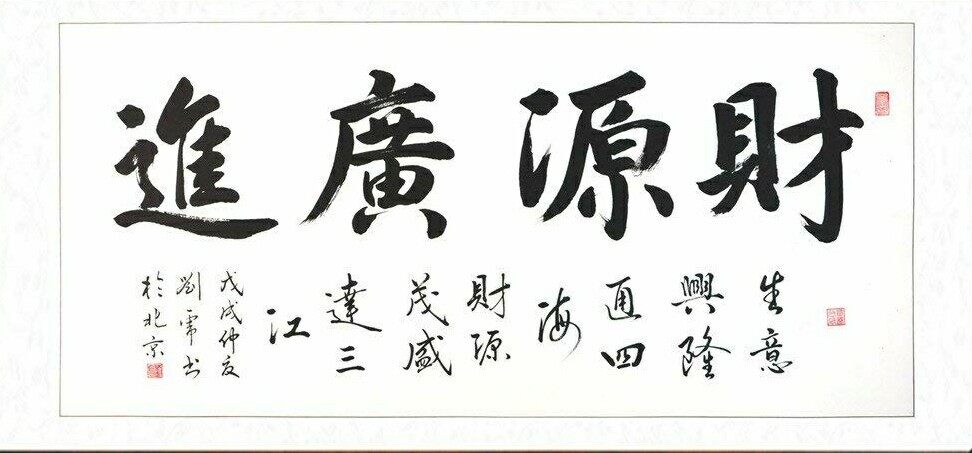 財源廣進
生意
興隆
通四
海
財源
茂盛
達三
江
戊戌仲夏
劉霈书
於北京